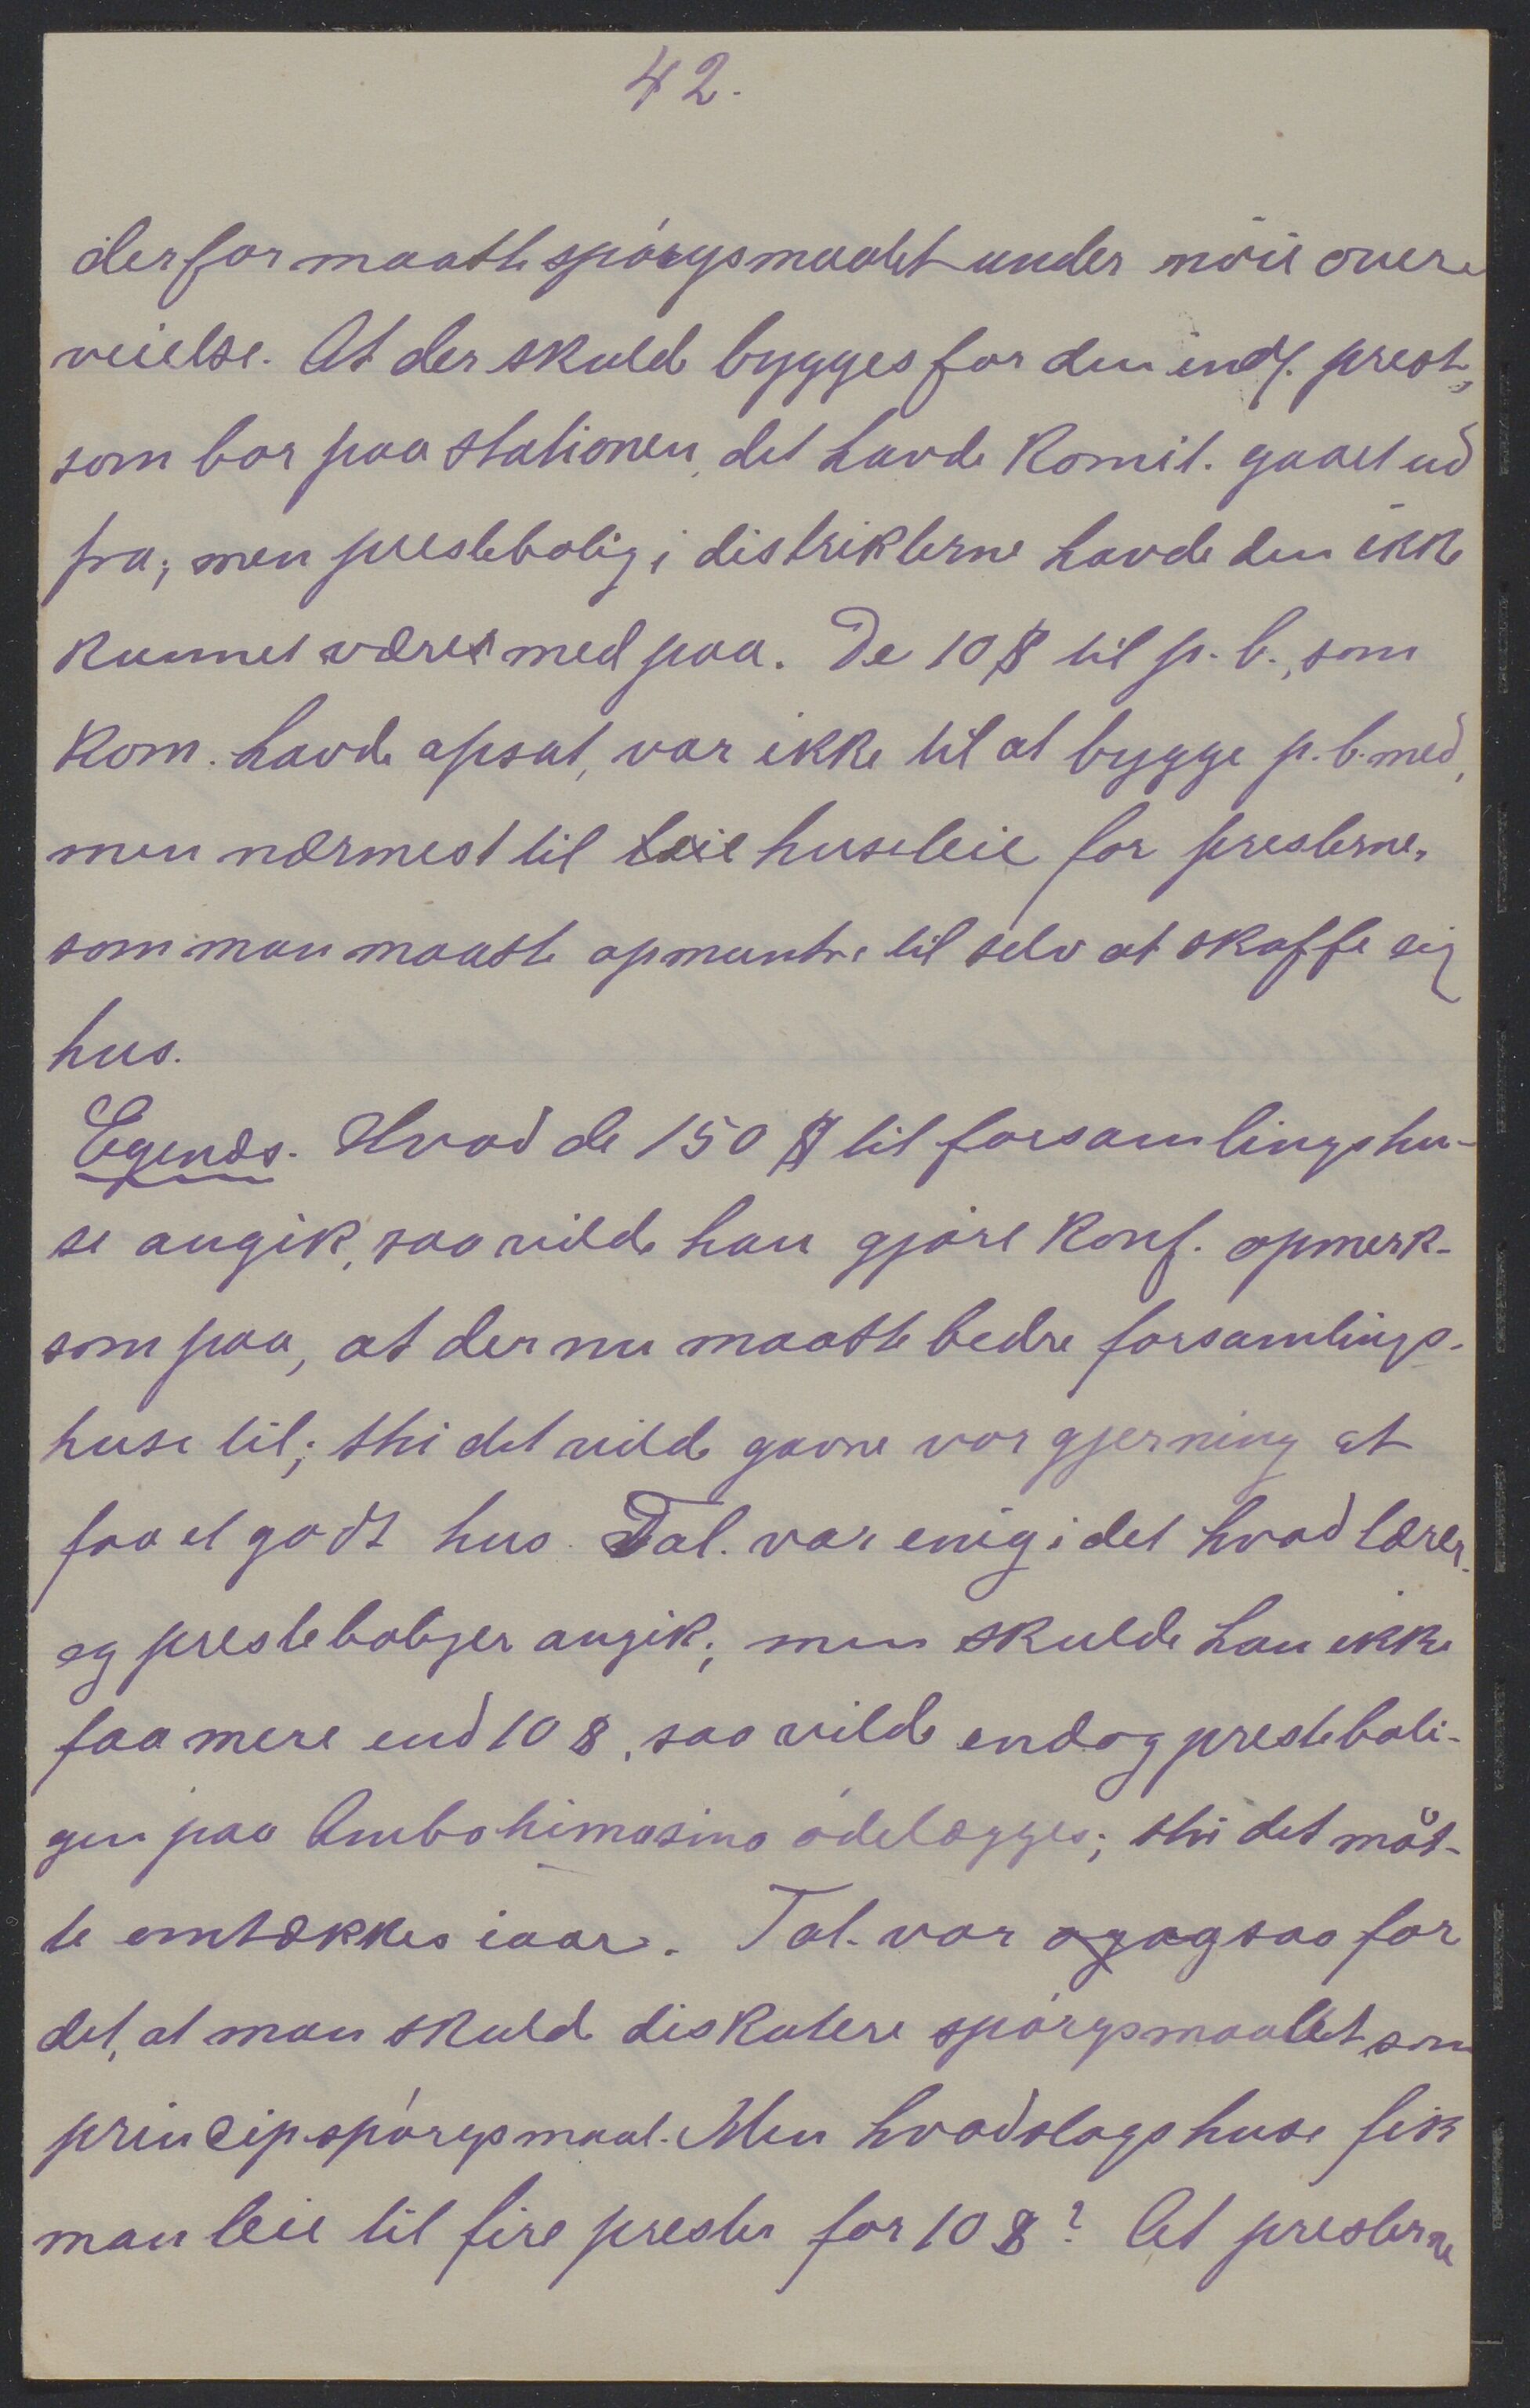 42.
derfor maatte spórgsmaalet under nöie over-
veielse. At der skulde bygges for den indf. prest,
som bor paa stationen, det havde Komit. gaaet ud
fra; men prestebolig i distrikterne havde den ikke
kunnet været med paa. De 10 $ til p. b., som
Kom. havde opsat, var ikke til at bygge p. b. med,
men nærmest til leie husleie for presterne,
som man maatte opmuntre til selv at skaffe sig
hus.
Egenæs. Hvad de 150 $ til forsamlingshu-
se angik, saa vilde han gjøre Konf. opmerk-
som paa, at der nu maatte bedre forsamlings-
huse til; thi det vilde gavne vor gjerning at
faa et godt hus. Tal. var enig i det hvad lærer-
og presteboliger angik; men skulde han ikke
faa mere end 10 $, saa vilde endog presteboli-
gen paa Ambohimasina ódelægges; thi det måt-
te omtækkes iaar. Tal. var og ogsaa for
det, at man skulde diskutere spórgsmaalet som
princip spórgsmaal. Men hvadslags huse fik
man leie til fire prester for 10 $? At presterne